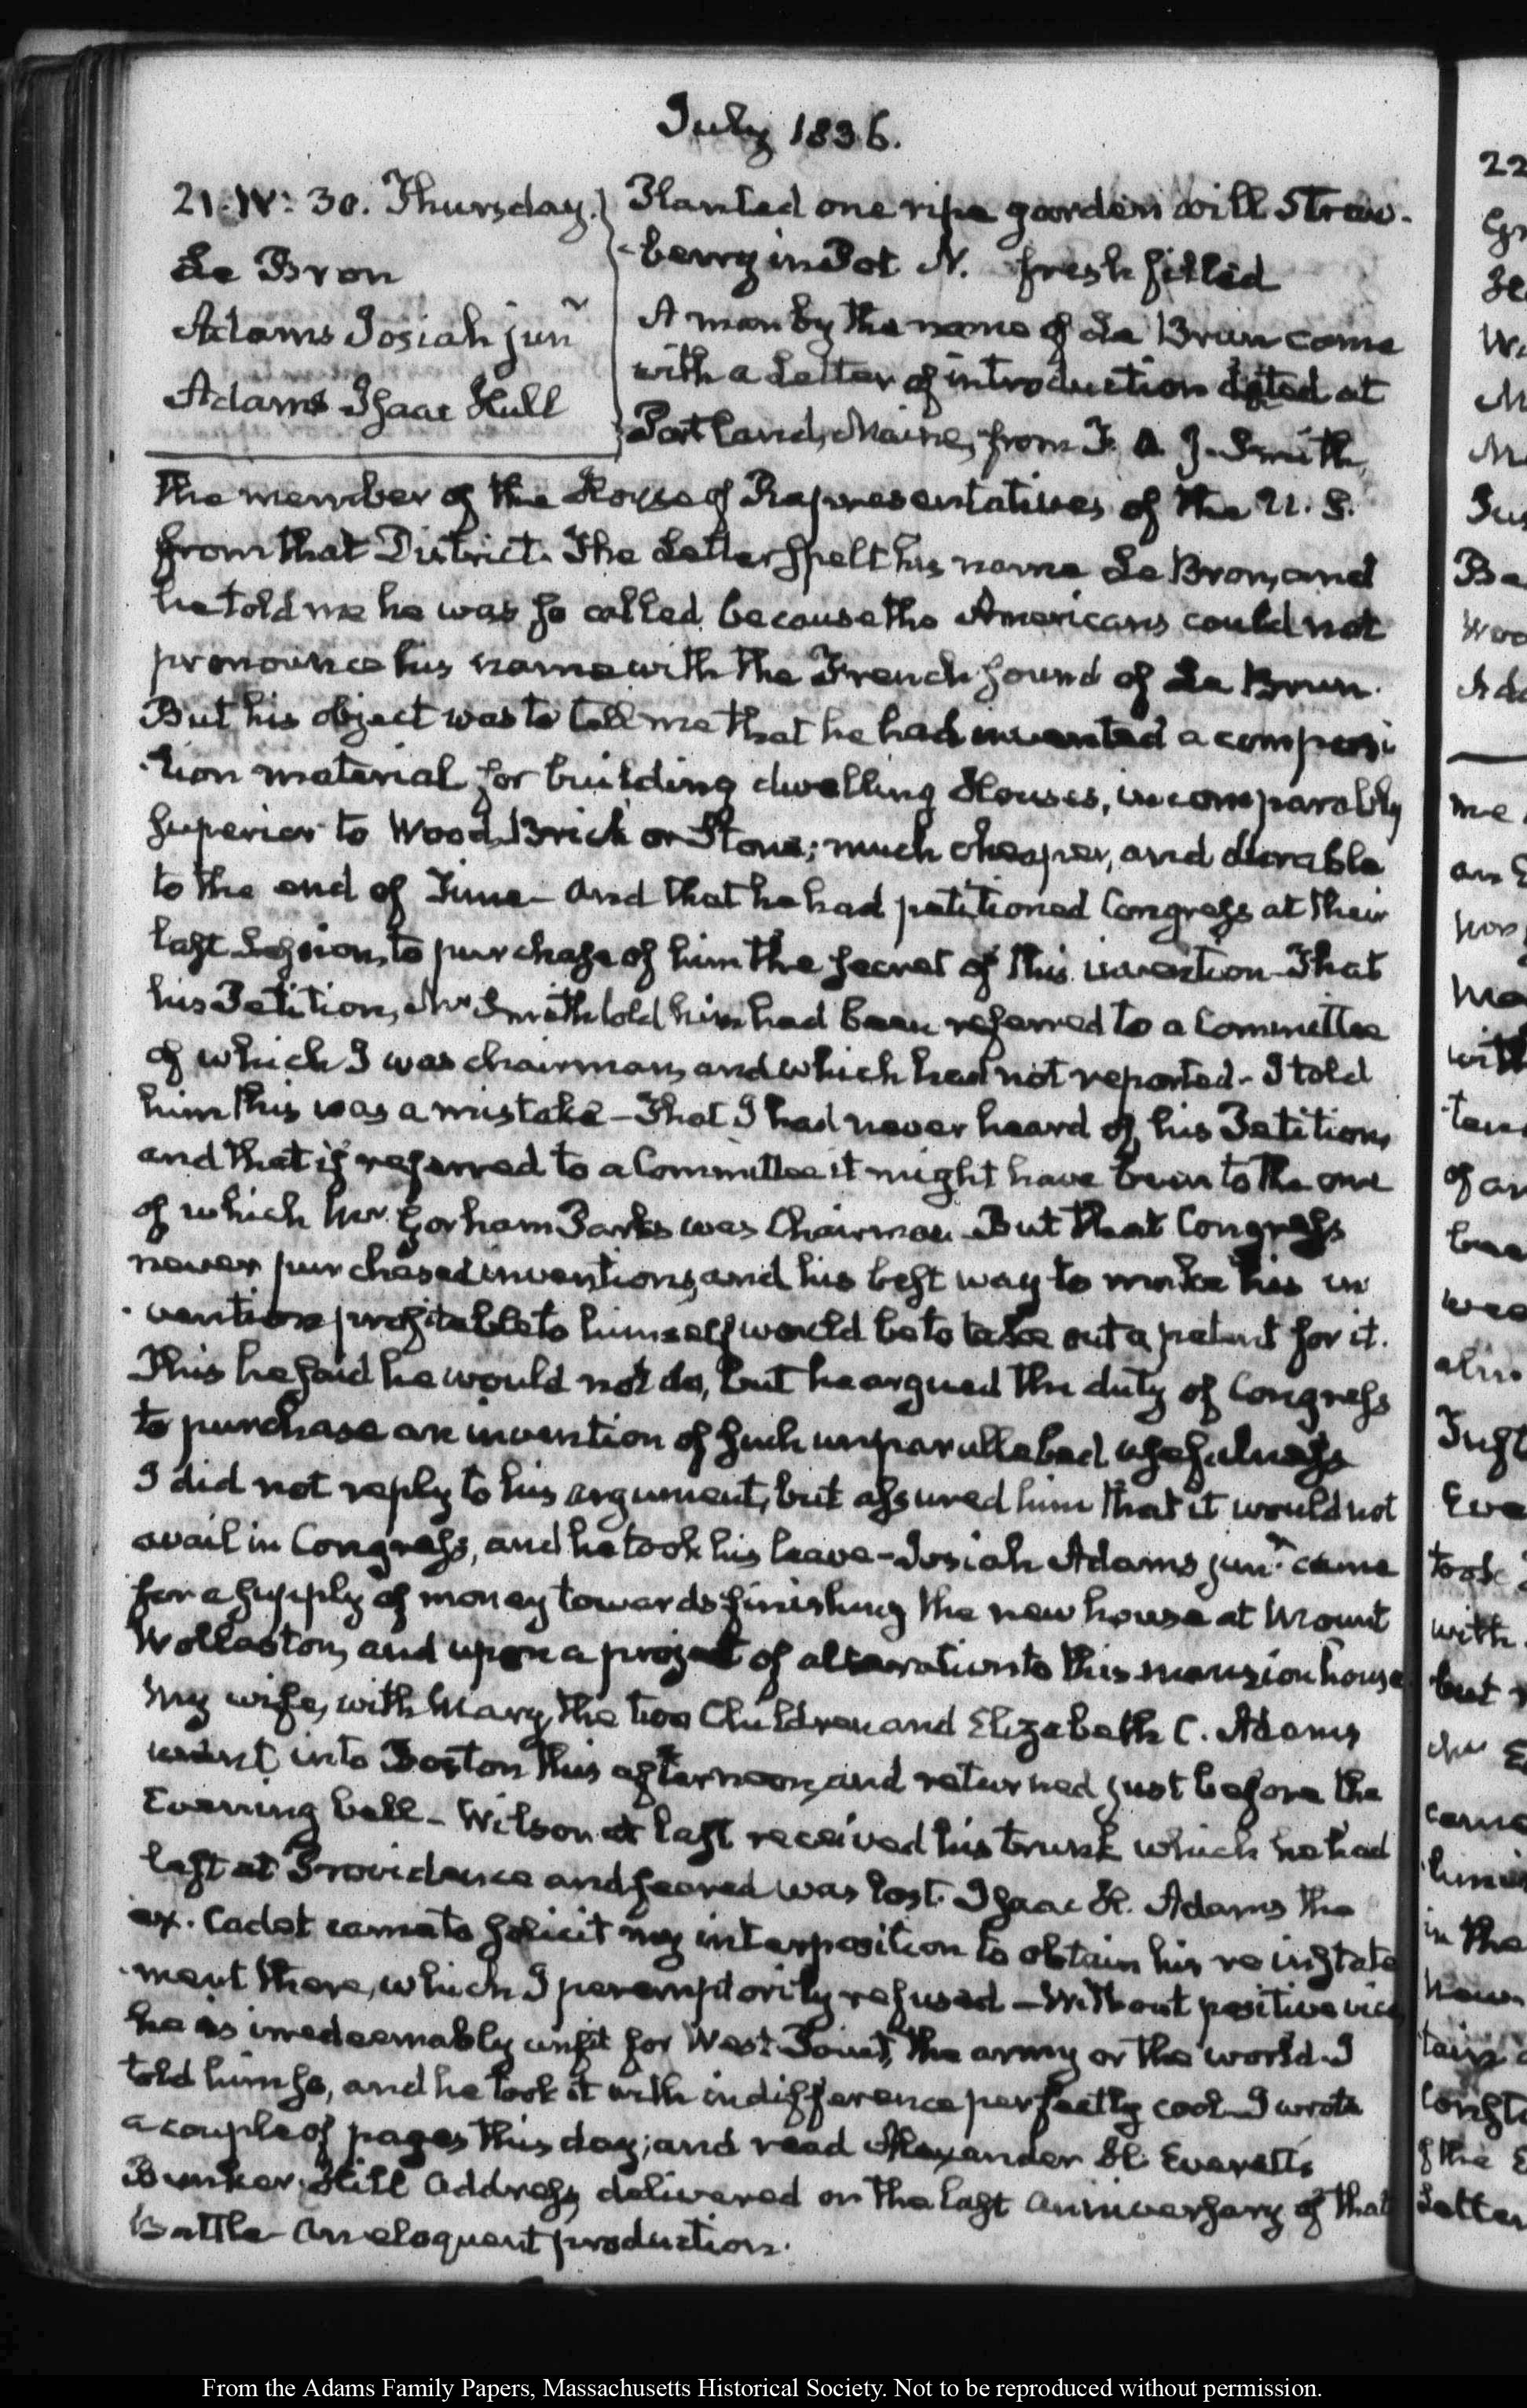 July 1836.
21. IV: 30. Thursday.
Le Bron
Adams Josiah junr
Adams Isaac Hull
Planted one ripe garden Straw-
-berry in Pot N. fresh filled
A man by the name of Le Brun came
with a Letter of introduction dated at
Portland, Maine, from F. O. J. Smith,
the member of the House of Representatives of the U. S.
from that District. The Letter spelt his name Le Bron, and
he told me he was so called because the Americans could not
pronounce his name with the French sound of Le Brun.
But his object was to tell me that he had invented a composi
-tion material for building dwelling Houses, incomparably
superior to Wood, Brick or Stone; much cheaper, and durable
to the end of Time— and that he had petitioned Congress at their
last Session, to purchase of him the secret of this invention— That
his Petition, Mr Smith told him had been referred to a Committee
of which I was chairman, and which had not reported— I told
him this was a mistake— That I had never heard of his Petition,
and that if referred to a Committee it might have been to the one
of which Mr Gorham Parks was Chairman— But that Congress
never purchased inventions, and his best way to make his in
-vention profitable to himself would be to take out a patent for it.
This he said he would not do, but he argued the duty of Congress
to purchase an invention of such unparalleled usefulness
I did not reply to his argument, but assured him that it would not
avail in Congress, and he took his leave— Josiah Adams junr came
for a supply of money towards finishing the new house at Mount
Wollaston, and upon a project of alteration to this mansion house
My wife, with Mary, the two Children and Elizabeth C. Adams
went into Boston this afternoon, and returned just before the
Evening bell— Wilson at last received his trunk which he had
left at Providence and feared was lost. Isaac H. Adams the
ex. Cadet came to solicit my interposition to obtain his reinstate
-ment there, which I peremptorily refused— Without positive vice
he is irredeemably unfit for West-Point, the army or the world. I
told him so, and he took it with indifference perfectly cool— I wrote
a couple of pages this day; and read Alexander H. Everett's
Bunker Hill Address, delivered on the last anniversary of that
Battle— An eloquent production.
From the Adams Family Papers, Massachusetts Historical Society. Not to be reproduced without permission.